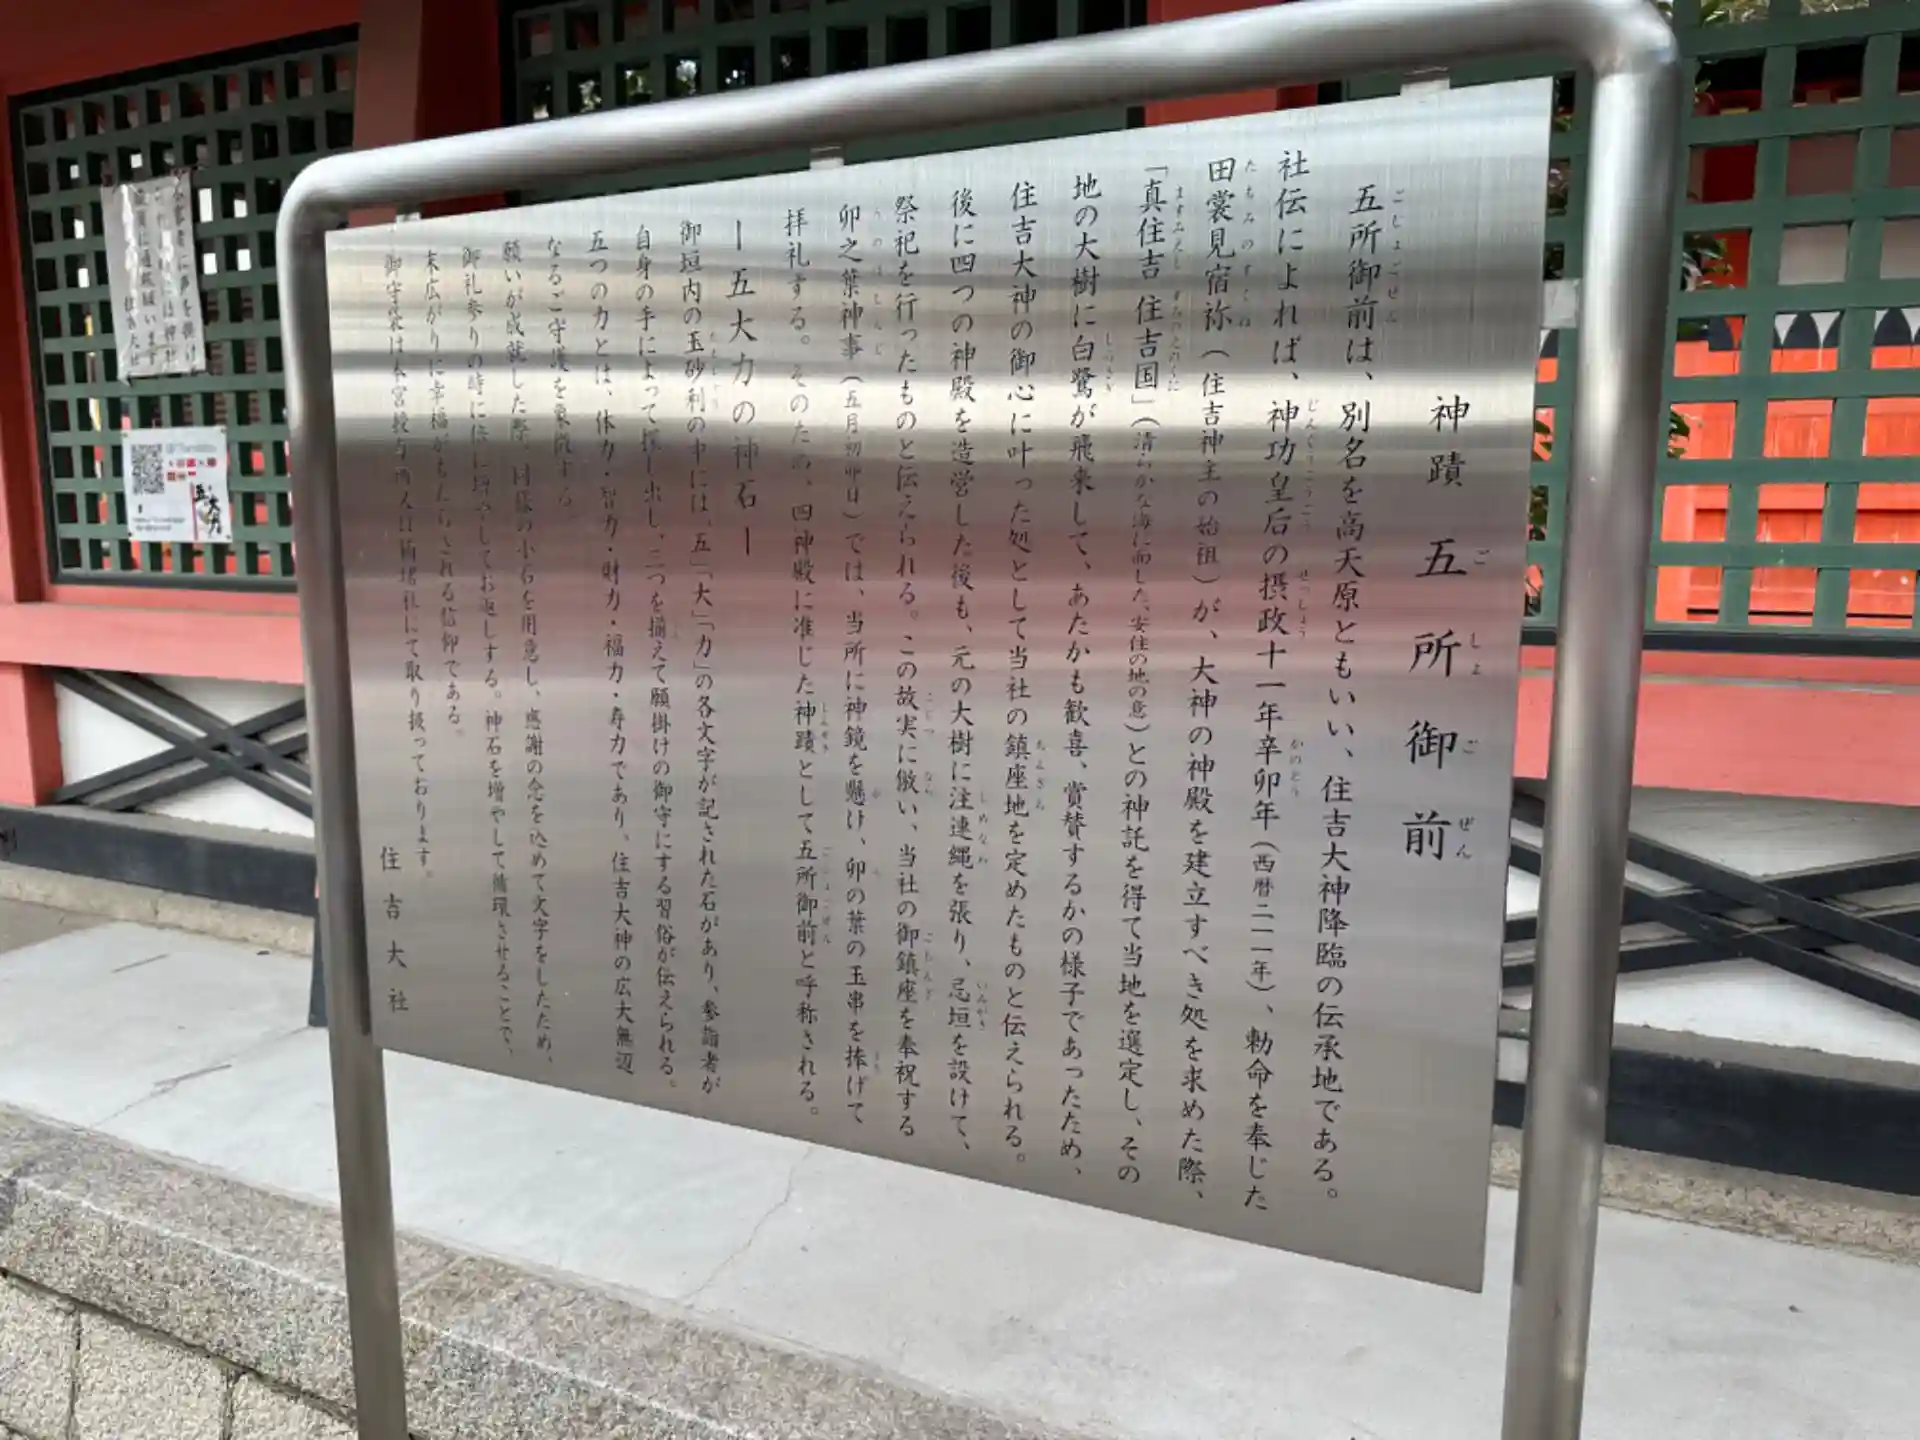 神蹟 五所御前
五所御前は、別名を高天原ともいい、住吉大神降臨の伝承地である。
社伝によれば、神功皇后の摂政十一年辛卯年（西暦二一一年）、勅命を奉じた
田裳見宿祢（住吉神主の始祖）が、大神の神殿を建立すべき処を求めた際、
「真住吉 住吉国」（清らかな海に面した、安住の地の意）との神託を得て当地を選定し、その
地の大樹に白鷺が飛来して、あたかも歓喜、賞賛するかの様子であったため、
住吉大神の御心に叶った処として当社の鎮座地を定めたものと伝えられる。
後に四つの神殿を造営した後も、元の大樹に注連縄を張り、忌垣を設けて、
祭祀を行ったものと伝えられる。この故実に倣い、当社の御鎮座を奉祝する
卯之葉神事（五月初卯日）では、当所に神鏡を懸け、卯の葉の玉串を捧げて
拝礼する。そのため、四神殿に准じた神蹟として五所御前と呼称される。
―五大力の神石―
御垣内の玉砂利の中には、「五」「大」「力」の各文字が記された石があり、参詣者が
自身の手によって探し出し、三つを揃えて願掛けの御守にする習俗が伝えられる。
五つの力とは、体力・智力・財力・福力・寿力であり、住吉大神の広大無辺
なるご守護を象徴する。
願いが成就した際、同様の小石を用意し、感謝の念を込めて文字をしたため、
御礼参りの時に倍に増やしてお返しする。神石を増やして循環させることで、
末広がりに幸福がもたらされる信仰である。
御守袋は本宮授与所又は楠珺社にて取り扱っております。
住吉大社
五大力